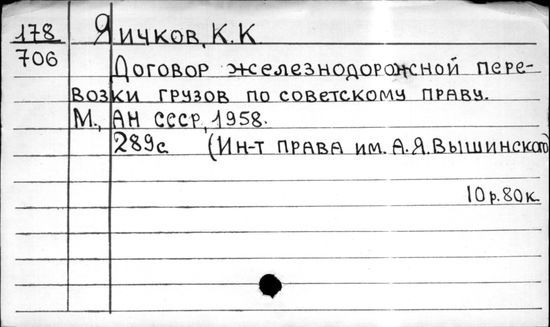 178 Яичков, К. К.
706 Договор железнодорожной пере-
возки грузов по советскому праву.
М., АН СССР, 1958.
289с. (Ин-т права им. А.Я.Вышинского)
10р.80к.